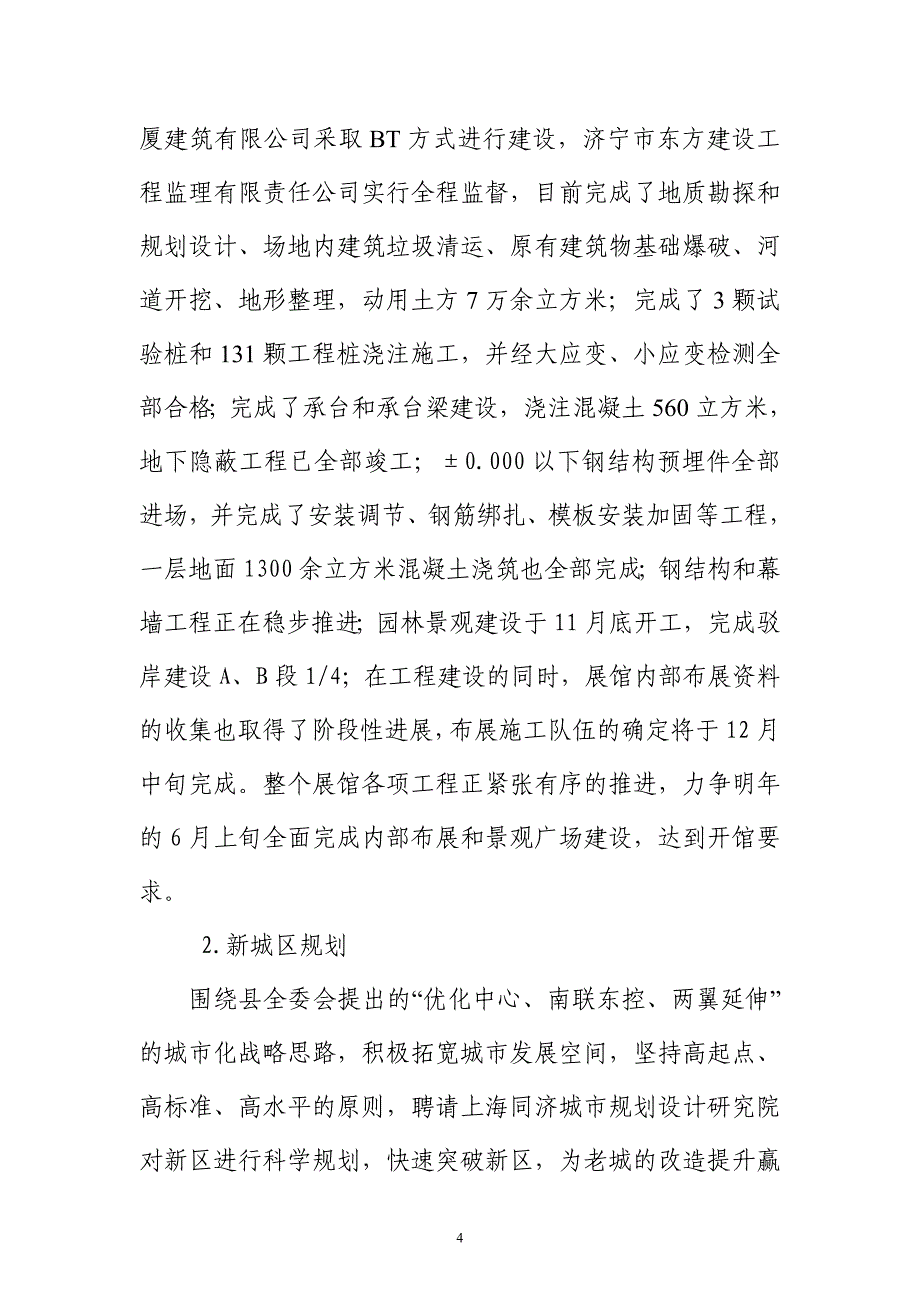 厦建筑有限公司采取 BT 方式进行建设，济宁市东方建设工
程监理有限责任公司实行全程监督，目前完成了地质勘探和
规划设计、场地内建筑垃圾清运、原有建筑物基础爆破、河
道开挖、地形整理，动用土方 7 万余立方米；完成了 3 颗试
验桩和 131 颗工程桩浇注施工，并经大应变、小应变检测全
部合格；完成了承台和承台梁建设，浇注混凝土 560 立方米，
地下隐蔽工程已全部竣工；±0.000 以下钢结构预埋件全部
进场，并完成了安装调节、钢筋绑扎、模板安装加固等工程，
一层地面 1300 余立方米混凝土浇筑也全部完成；钢结构和幕
墙工程正在稳步推进；园林景观建设于 11 月底开工，完成驳
岸建设 A、B 段 1/4；在工程建设的同时，展馆内部布展资料
的收集也取得了阶段性进展，布展施工队伍的确定将于 12 月
中旬完成。整个展馆各项工程正紧张有序的推进，力争明年
的 6 月上旬全面完成内部布展和景观广场建设，达到开馆要
求。
2.新城区规划
围绕县全委会提出的“优化中心、南联东控、两翼延伸”
的城市化战略思路，积极拓宽城市发展空间，坚持高起点、
高标准、高水平的原则，聘请上海同济城市规划设计研究院
对新区进行科学规划，快速突破新区，为老城的改造提升赢
4